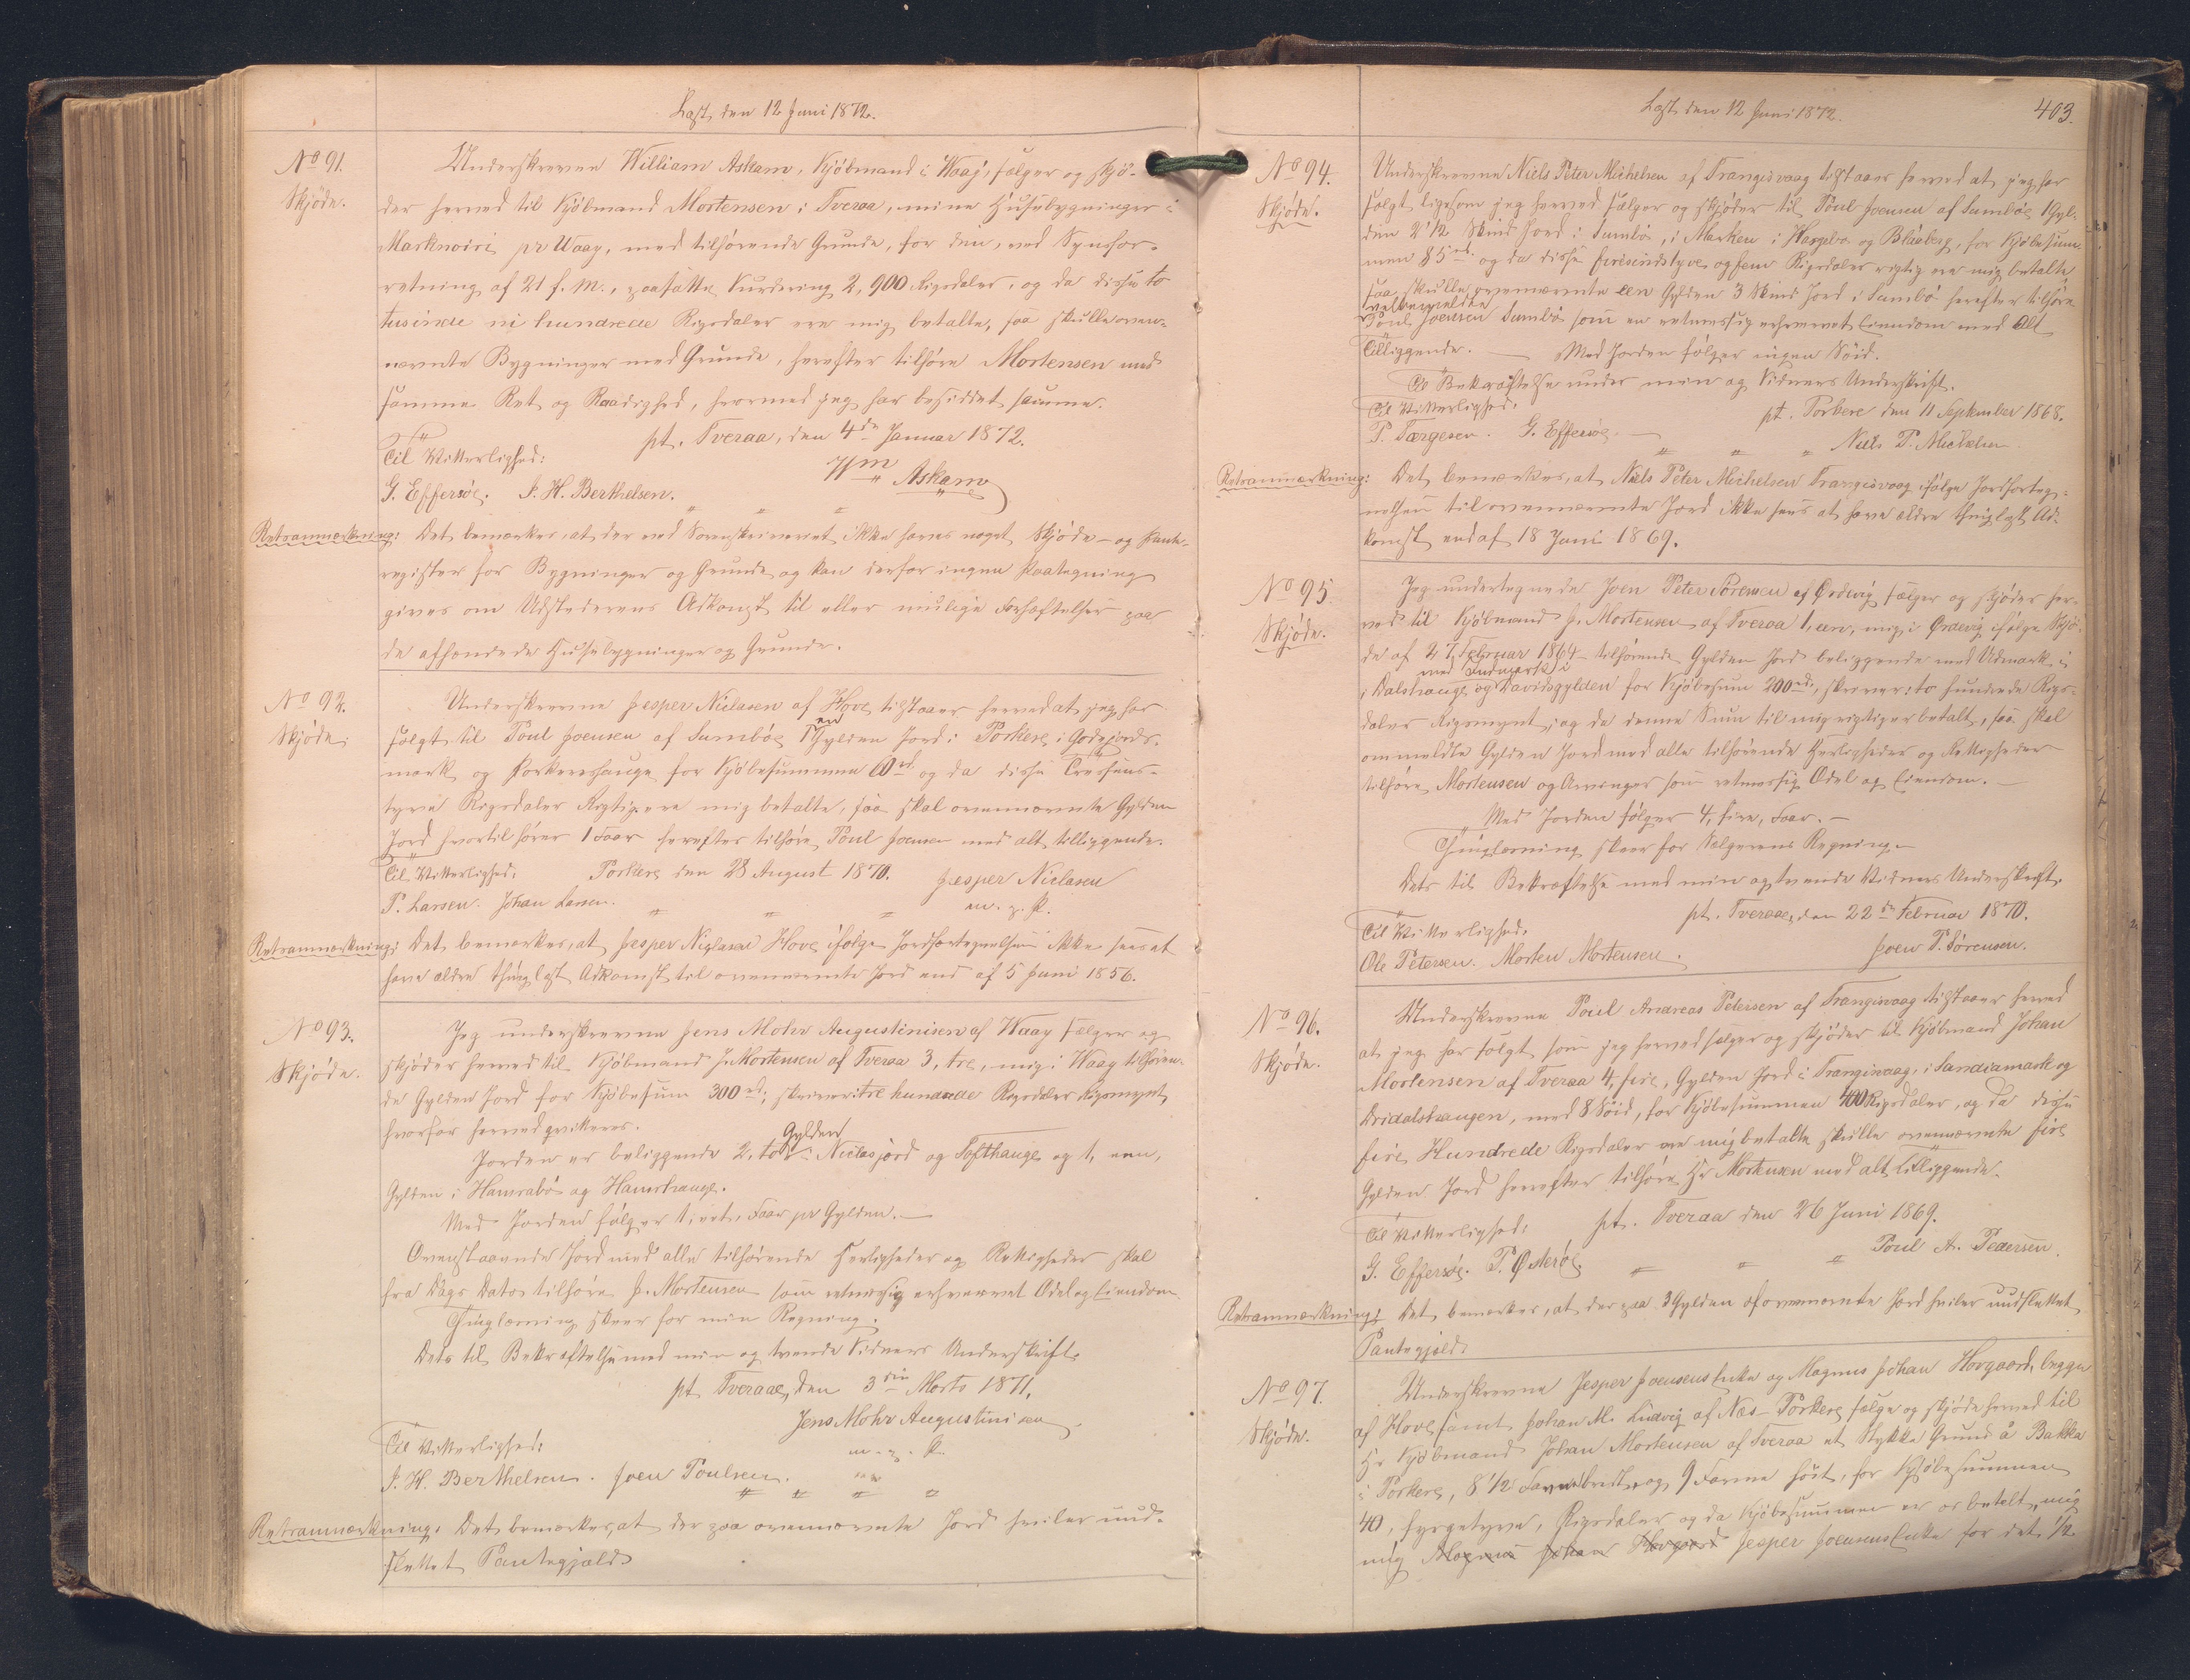 Læst, den 12 Juni 1872.
No 91.
Skjøde.
Underskrevne William Askam, Kjøbmand i Waaj, sælger og skjø-
der herved til Kjøbmand Mortensen i Tveraa, mine Huusbygninger i
Marknoiri pr Waag, med tilhørende Grunde, for den, ved Synsfor-
retning af 21 f. M., paasatte Vurdering 2,900 Rigsdaler, og da disse to
tusinde ni hundrede Rigsdaler ere mig betalte, saa skulle oven-
nævnte Bygninger med Grunde, herefter tilhøre Mortensen med
samme Ret og Raadighed, hvormed jeg har besiddet samme.
pt. Tveraa, den 4de Januar 1872.
Til Vitterlighed:
Wm Askam
G. Effersøe. J. H. Berthelsen.
Retsanmærkning: Det bemærkes, at der ved Sorenskriveriet ikke haves noget Skjøde- og Pante-
register for Bygninger og Grunde og kan derfor ingen Paategning
gives om Udstederens Adkomst til eller mulige Behæftelser paa
de afhændede Huusbygninger og Grunde.
No 92.
Skjøde.
Underskrevne Jesper Niclasen af Hove tilstaaer herved at jeg har
solgt til Poul Joensen af Sumbøe 1 en Gylden Jord i Porkere i Godtjords-
mark og Porkereshauge for Kjøbesummen 60 rd. og da disse Tresinds-
tyve Rigsdaler Rigtig ere mig betalte, saa skal ovennævnte Gylden
Jord hvortil hører 1 Faar herefter tilhøre Poul Joensen med alt tilliggende.
Til Vitterlighed: Porkere den 28 August 1870. Jesper Niclasen
P. Larsen. Johan Larsen. m. p. P.
Retsanmærkning: Det bemærkes, at Jesper Niclasen Hove ifølge Jordfortegnelsen ikke sees at
have ældre thinglæst Adkomst til ovennævnte Jord end af 5 Juni 1856.
No 93.
Skjøde.
Jeg underskrevne Jens Mohr Augustinisen af Waag sælger og
skjøder herved til Kjøbmand J. Mortensen af Tveraa 3, tre, mig i Waag tilhøren-
de Gylden Jord for Kjøbesum 300 rd., skriver: tre hundrede Rigsdaler Rigsmynt,
hvorfor herved qvitteres.
Jorden er beliggende 2, to Gylden i Niclasjord og Tofthauge og 1, een,
Gylden i Hamrabø og Hamrhauge.
Med Jorden følger 1, et, Faar pr Gylden.
Ovenstaaende Jord med alle tilhørende Herligheder og Rettigheder skal
fra Dags Dato tilhøre J. Mortensen som retmæssig erhvervet Odel og Eiendom.
Thinglæsning skeer for min Regning.
Dets til Bekræftelse med min og tvende Vidners Underskrift.
pt Tveraae, den 3die Marts 1871.
Jens Mohr Augustinisen
Til Vitterlighed: m. p. P.
J. H. Berthelsen. Joen Poulsen.
Retsanmærkning: Det bemærkes, at der paa ovennævnte Jord hviler uud-
slettet Pantegjæld
Læst den 12 Juni 1872.
403.
No 94.
Skjøde.
Underskrevne Niels Peter Michelsen af Trangisvaag tilstaaer herved at jeg har
solgt ligesom jeg herved sælger og skjøder til Poul Joensen af Sumbøe 1 Gyl-
den 2 1/2 Skind Jord i Sumbø, i Marken i Hargabø og Blåaberg, for Kjøbesum-
men 85 rd. og da disse firesindstyve og fem Rigsdaler rigtig ere mig betalte
saa skulle ovennævnte een Gylden 3 Skind Jord i Sumbø herefter tilhøre
Poul Joensen Sumbø som en retmæssig erhvervet Eiendom med Alt
Tilliggende. Med Jorden følger ingen Søid.
Til Bekræftelse under min og Vidners Underskrift.
Til Vitterlighed: pt. Porkere den 11 September 1868.
P. Færgesen. G. Effersøe. Niels P. Michelsen
Retsanmærkning: Det bemærkes, at Niels Peter Michelsen Trangisvaag ifølge Jordforteg-
nelsen til ovennævnte Jord ikke sees at have ældre thinglæst Ad-
komst end af 18 Juni 1869.
No 95
Skjøde.
Jeg undertegnede Joen Peter Sørensen af Ørdevig sælger og skjøder her-
ved til Kjøbmand J. Mortensen af Tveraa 1, een, mig i Ørdevig ifølge Skjø-
de af 27 Februar 1864 tilhørende Gylden Jord beliggende med Udmark i
med Indmark i
Dalshauge og Davidsgylden for Kjøbesum 200 rd., skriver: to hundrede Rigs-
daler Rigsmynt, og da denne Sum til mig rigtig er betalt, saa skal
ommeldte Gylden Jord med alle tilhørende Herligheder og Rettigheder
tilhøre Mortensen og Arvinger som retmæssig Odel og Eiendom.
Med Jorden følger 4, fire, Faar.
Thinglæsning skeer for Sælgerens Regning.
Dets til Bekræftelse med min og tvende Vidners Underskrift.
pt. Tveraae, den 22de Februar 1870.
Til Vitterlighed:
Ole Petersen. Morten Mortensen. Joen P. Sørensen.
No 96.
Skjøde.
Underskrevne Poul Andreas Petersen af Trangisvaag tilstaaer herved
at jeg har solgt som jeg herved sælger og skjøder til Kjøbmand Johan
Mortensen af Tveraa 4, fire, Gylden Jord i Trangisvaag, i Sandiamark og
Dridalshaugen, med 8 Søid, for Kjøbesummen 400 Rigsdaler, og da disse
fire Hundrede Rigsdaler ere mig betalte skulle ovennævnte fire
Gylden Jord herefter tilhøre Hr Mortensen med alt tilliggende.
Til Vitterlighed: pt. Tveraa den 26 Juni 1869.
G. Effersøe. P. Østerøe. Poul A. Pedersen.
Retsanmærkning: Det bemærkes, at der paa 3 Gylden af ovennævnte Jord hviler uudslettet
Pantegjæld.
No 97.
Skjøde.
Underskrevne Jesper Joensens Enke og Magnus Johan Hovgaard, begge
af Hove samt Johan M. Ludvig af Næs-Porkere sælge og skjøde herved til
Hr Kjøbmand Johan Mortensen af Tveraa et Stykke Grund å Bakka
i Porkere, 8 1/2 Favne bredt, og 9 Favne høit, for Kjøbesummen
40, fyrgetyve, Rigsdaler og da Kjøbesummen er os betalt, mig
mig Magnus Johan Hovgaard Jesper Joensens Enke for det 1/2